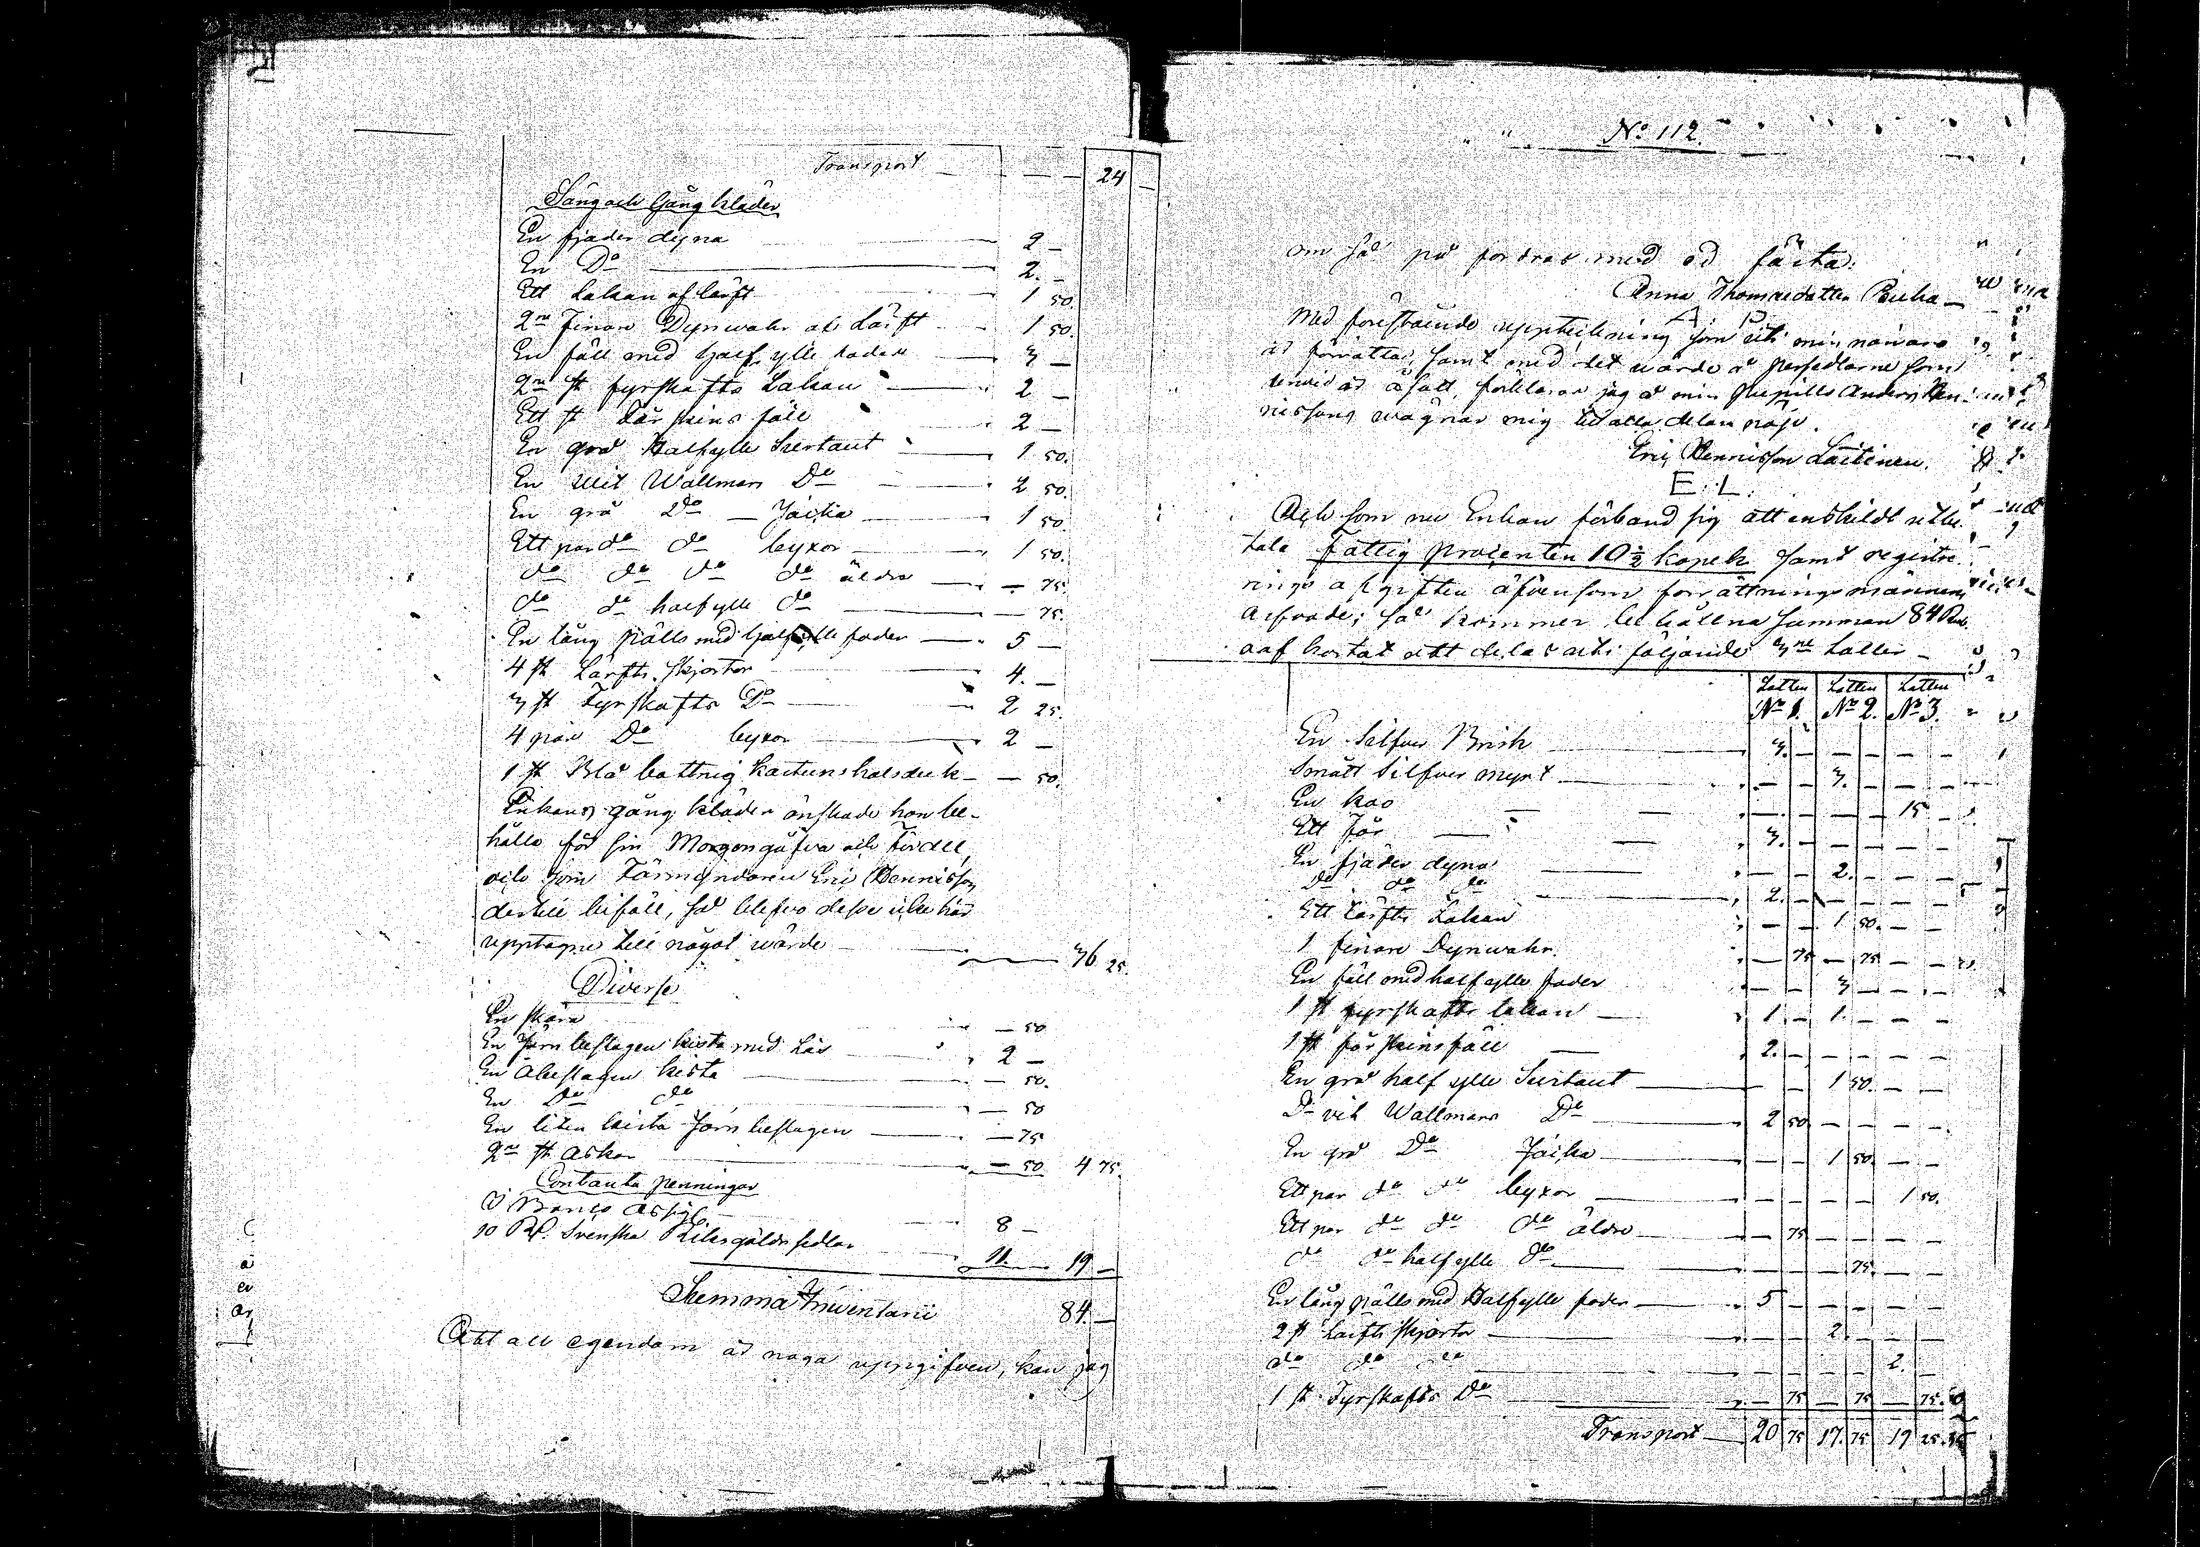 Transport — — — 24 —
Säng och Gång kläder
En fjäder dyna — 2 —
En D:o — 2. —
Ett Lakan af lärft 1 50.
2ne finare Dynwahr af Lärft 1 50.
En fäll med half ylle foder 3 —
2ne st fyrskafts Lakan 2 —
Ett st Fårskins fäll 2 —
En grå Halfylle Surtout 1 50.
En vit Wallmars D:o 2 50.
En grå D:o — Jacka 1 50.
Ett par d:o d:o byxor 1 50.
d:o d:o d:o d:o äldre — 75.
d:o d:o halfylle d:o — 75.
En lång pälls med halfylle foder 5 —
4 st Lärfts skjortor 4. —
3 st Fyrskafts D:o 2 25.
4 par D:o byxor 2 —
1 st Blå bottnig Kartuns halsduk — 50.
Enkans gång kläder önskade hon be-
hålla för sin Morgongåfva och Fördel,
och som Förmyndaren Eric Hennisson
dertill biföll, så blefvo desse icke här
upptagne till något wärde 36 25.
Diverse
En skära — 50
En Järnbeslagen kista med Lås 2 —
En Obeslagen kista — 50.
En D:o d:o — 50
En liten kista Järnbeslagen — 75
2ne st askar — 50 4 75.
Contanta penningar
I Banco Assig. 8 —
10 Rd. Svenska Riksgälds sedlar 11. — 19 —
Summa Inventarii 84. —
Att all egendom är noga uppgifven, kan jag
No 112.
om så på fordras med ed fästa:
Anna Thomasdotter
A. P
Med förestående uppteckning som uti min närvaro
är förrättad, samt med det wärde å persedlarne som
derwid är åsatt, förklarar jag å min Pupills Anders Hen-
nissons wägnar mig till alla delar nöjd.
Eric Hennisson Laitinen.
E. L.
Och som nu Enkan förband sig att enskildt utbe-
tala Fattig procenten 10 1/2 kopek samt registre-
rings afgiften äfvensom förrättningsmännens
arfvode; så kommer behållna summan 84 Rub.
oafkortat att delas uti följande 3ne Lotter —
Lotten No 1. Lotten No 2. Lotten No 3.
En Silfver Brisk 3. — — — — —
Smått Silfver mynt — — 3. — — —
En ko — — — — 15 —
Ett Får 3. — — — — —
En fjäder dyna — — 2. — — —
D:o d:o d:o 2. — — — — —
Ett Lärfts Lakan — — 1 50. — —
1 finare Dynwahr — 75 — 75 — —
En fäll med halfylle foder — — 3 — — —
1 st fyrskafts lakan 1. — 1. — — —
1 st fårskinsfäll 2. — — — — —
En grå half ylle Surtout — — 1 50. — —
D:o vit Wallmars D:o 2 50 — — — —
En grå D:o Jacka — — 1 50. — —
Ett par d:o d:o byxor — — — — 1 50.
Ett par d:o d:o d:o äldre — 75 — — — —
d:o d:o halfylle d:o — — — 75. — —
En lång pälls med Halfylle foder 5 — — — — —
2 st Lärfts skjortor — — 2. — — —
d:o d:o d:o — — — — 2. —
1 st Fyrskafts D:o — 75 — 75 — 75.
Transport 20 75 17. 75 19 25.